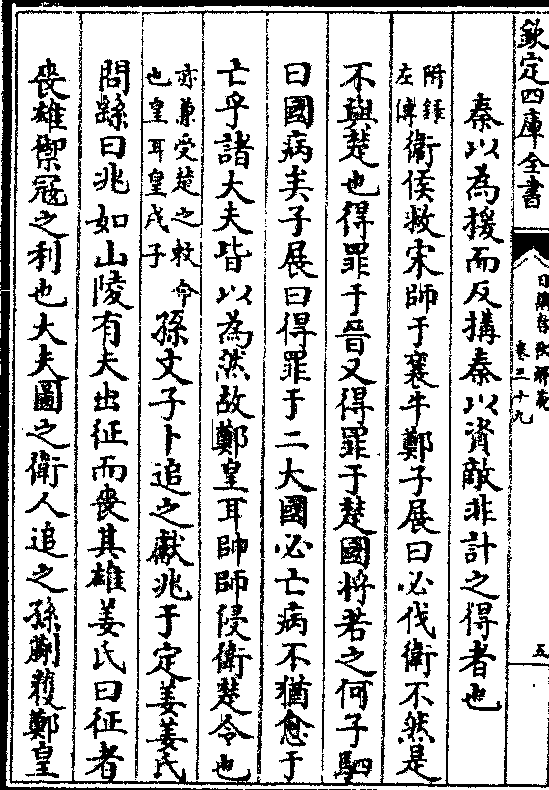 欽定四庫全書
日講春秋解義 卷三十九
五
秦以為援而反搆秦以資敵非計之得者也
附錄左傳衛侯救宋師于襄牛鄭子展曰必伐衛不然是
不與楚也得罪于晉又得罪于楚國將若之何子駟
曰國病矣子展曰得罪于二大國必亡病不猶愈于
亡乎諸大夫皆以為然故鄭皇耳帥師侵衛楚令也
亦兼受楚之敕命也皇耳皇戌子孫文子卜追之獻兆于定姜姜氏
問繇曰兆如山陵有夫出征而喪其雄姜氏曰征者
喪雄禦寇之利也大夫圖之衛人追之孫蒯獲鄭皇